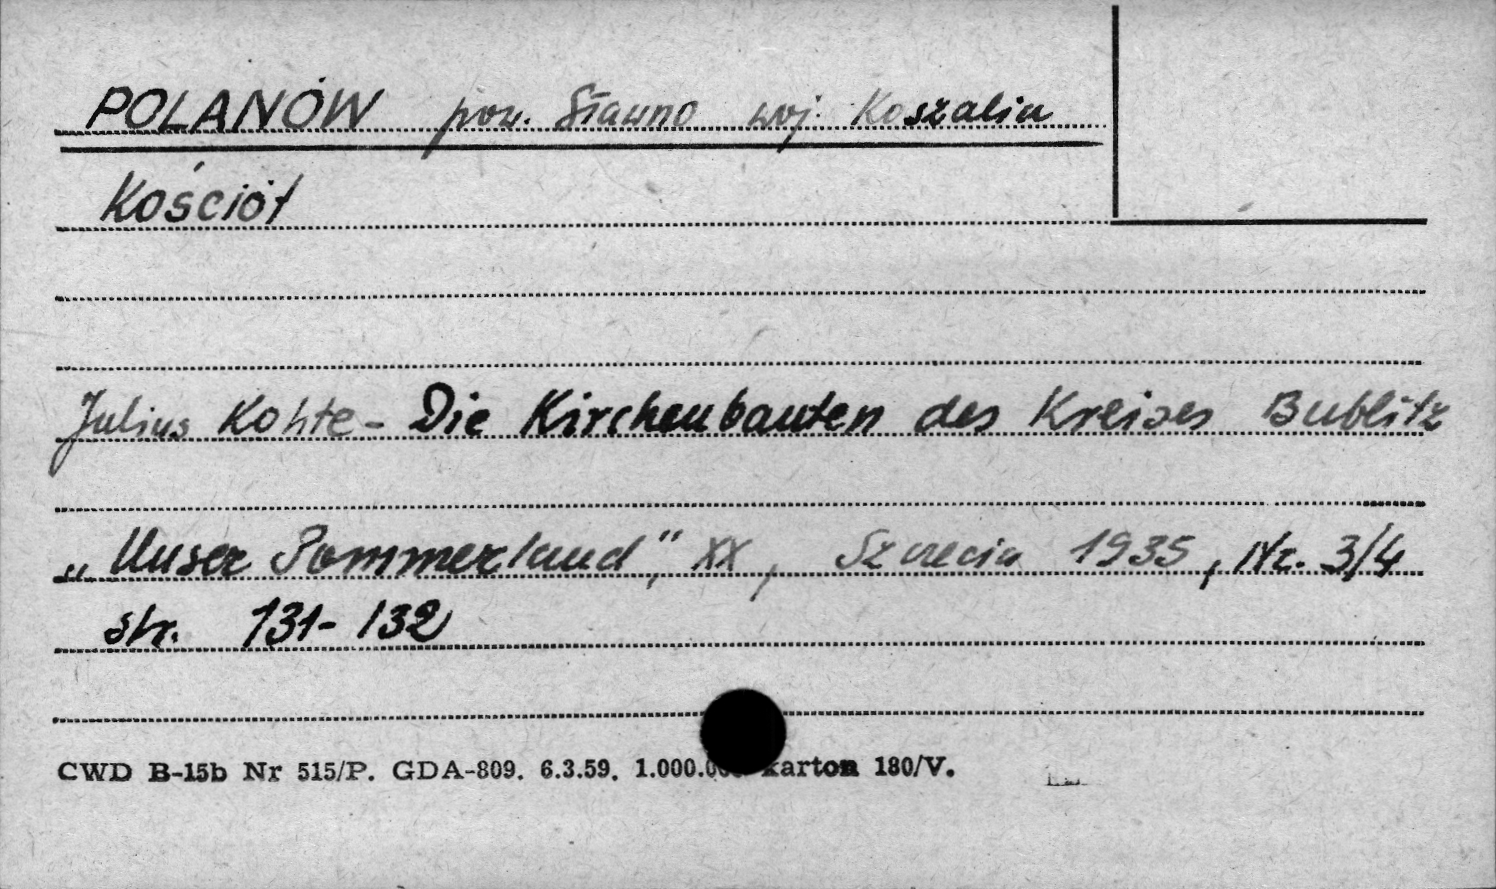 POLANÓW pow. Sławno woj. Koszalin
Kościół
Julius Kohte - Die Kirchenbauten des Kreises Bublitz
„Unser Pommerland", XX, Szczecin 1935, Nr. 3/4
str. 131-132
CWD B-15b Nr 515/P. GDA-809. 6.3.59. karton 180/V.